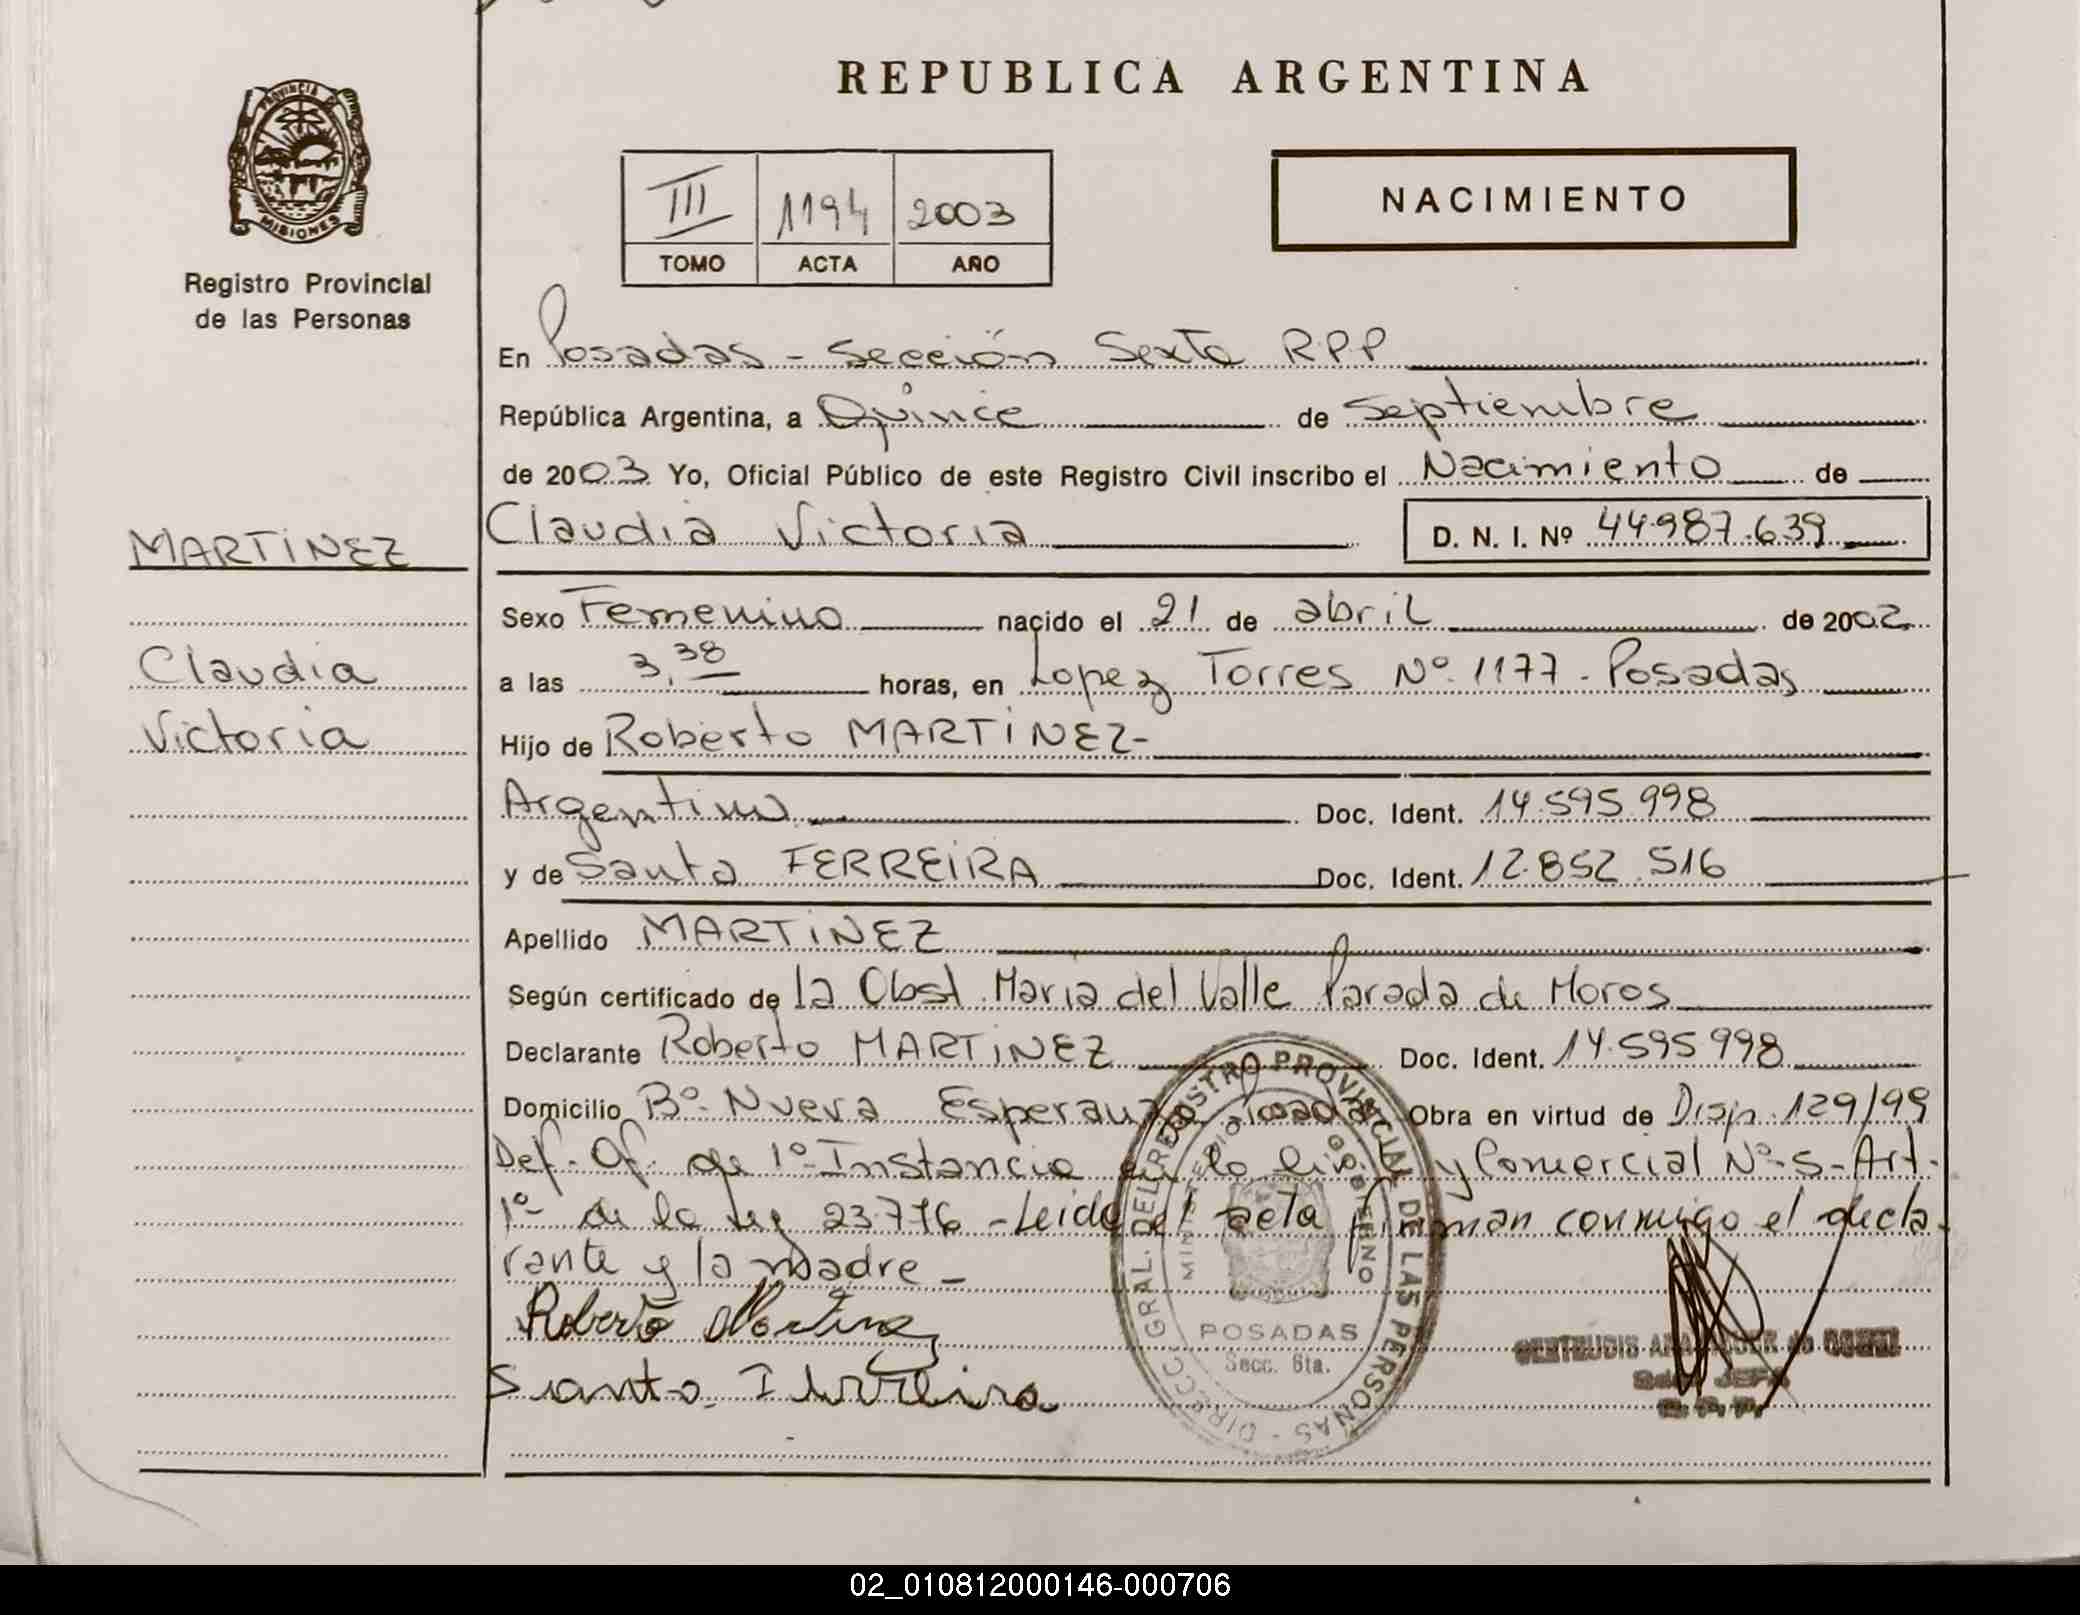 REPUBLICA ARGENTINA
PROVINCIA DE
MISIONES
Registro Provincial
de las Personas
III 1194 2003
TOMO ACTA AÑO
NACIMIENTO
En Posadas - Sección Sexta R.P.P
República Argentina, a Quince de Septiembre
de 2003 Yo, Oficial Público de este Registro Civil inscribo el Nacimiento de
MARTINEZ
Claudia Victoria D. N. I. Nº 44.987.639
Sexo Femenino nacido el 21 de abril de 2002
Claudia
a las 3,38 horas, en Lopez Torres Nº 1177 - Posadas
Victoria
Hijo de Roberto MARTINEZ-
Argentino Doc. Ident. 14.595.998
y de Santa FERREIRA Doc. Ident. 12.852.516
Apellido MARTINEZ
Según certificado de la Obst. Maria del Valle Parada de Moros
Declarante Roberto MARTINEZ Doc. Ident. 14.595.998
Domicilio Bº Nueva Esperanza Posadas Obra en virtud de Disp. 129/99
Def. Of. de 1º Instancia en lo Civil y Comercial Nº 5 - Art.
1º de la Ley 23.776 - Leida el acta firman conmigo el decla-
rante y la madre -
Roberto Martinez
Santa Ferreira
DIRECC. GRAL. DEL REGISTRO PROVINCIAL DE LAS PERSONAS
MINISTERIO GOBIERNO
POSADAS
Secc. 6ta.
GERTRUDIS
JEFA
R. P. P.
02_010812000146-000706